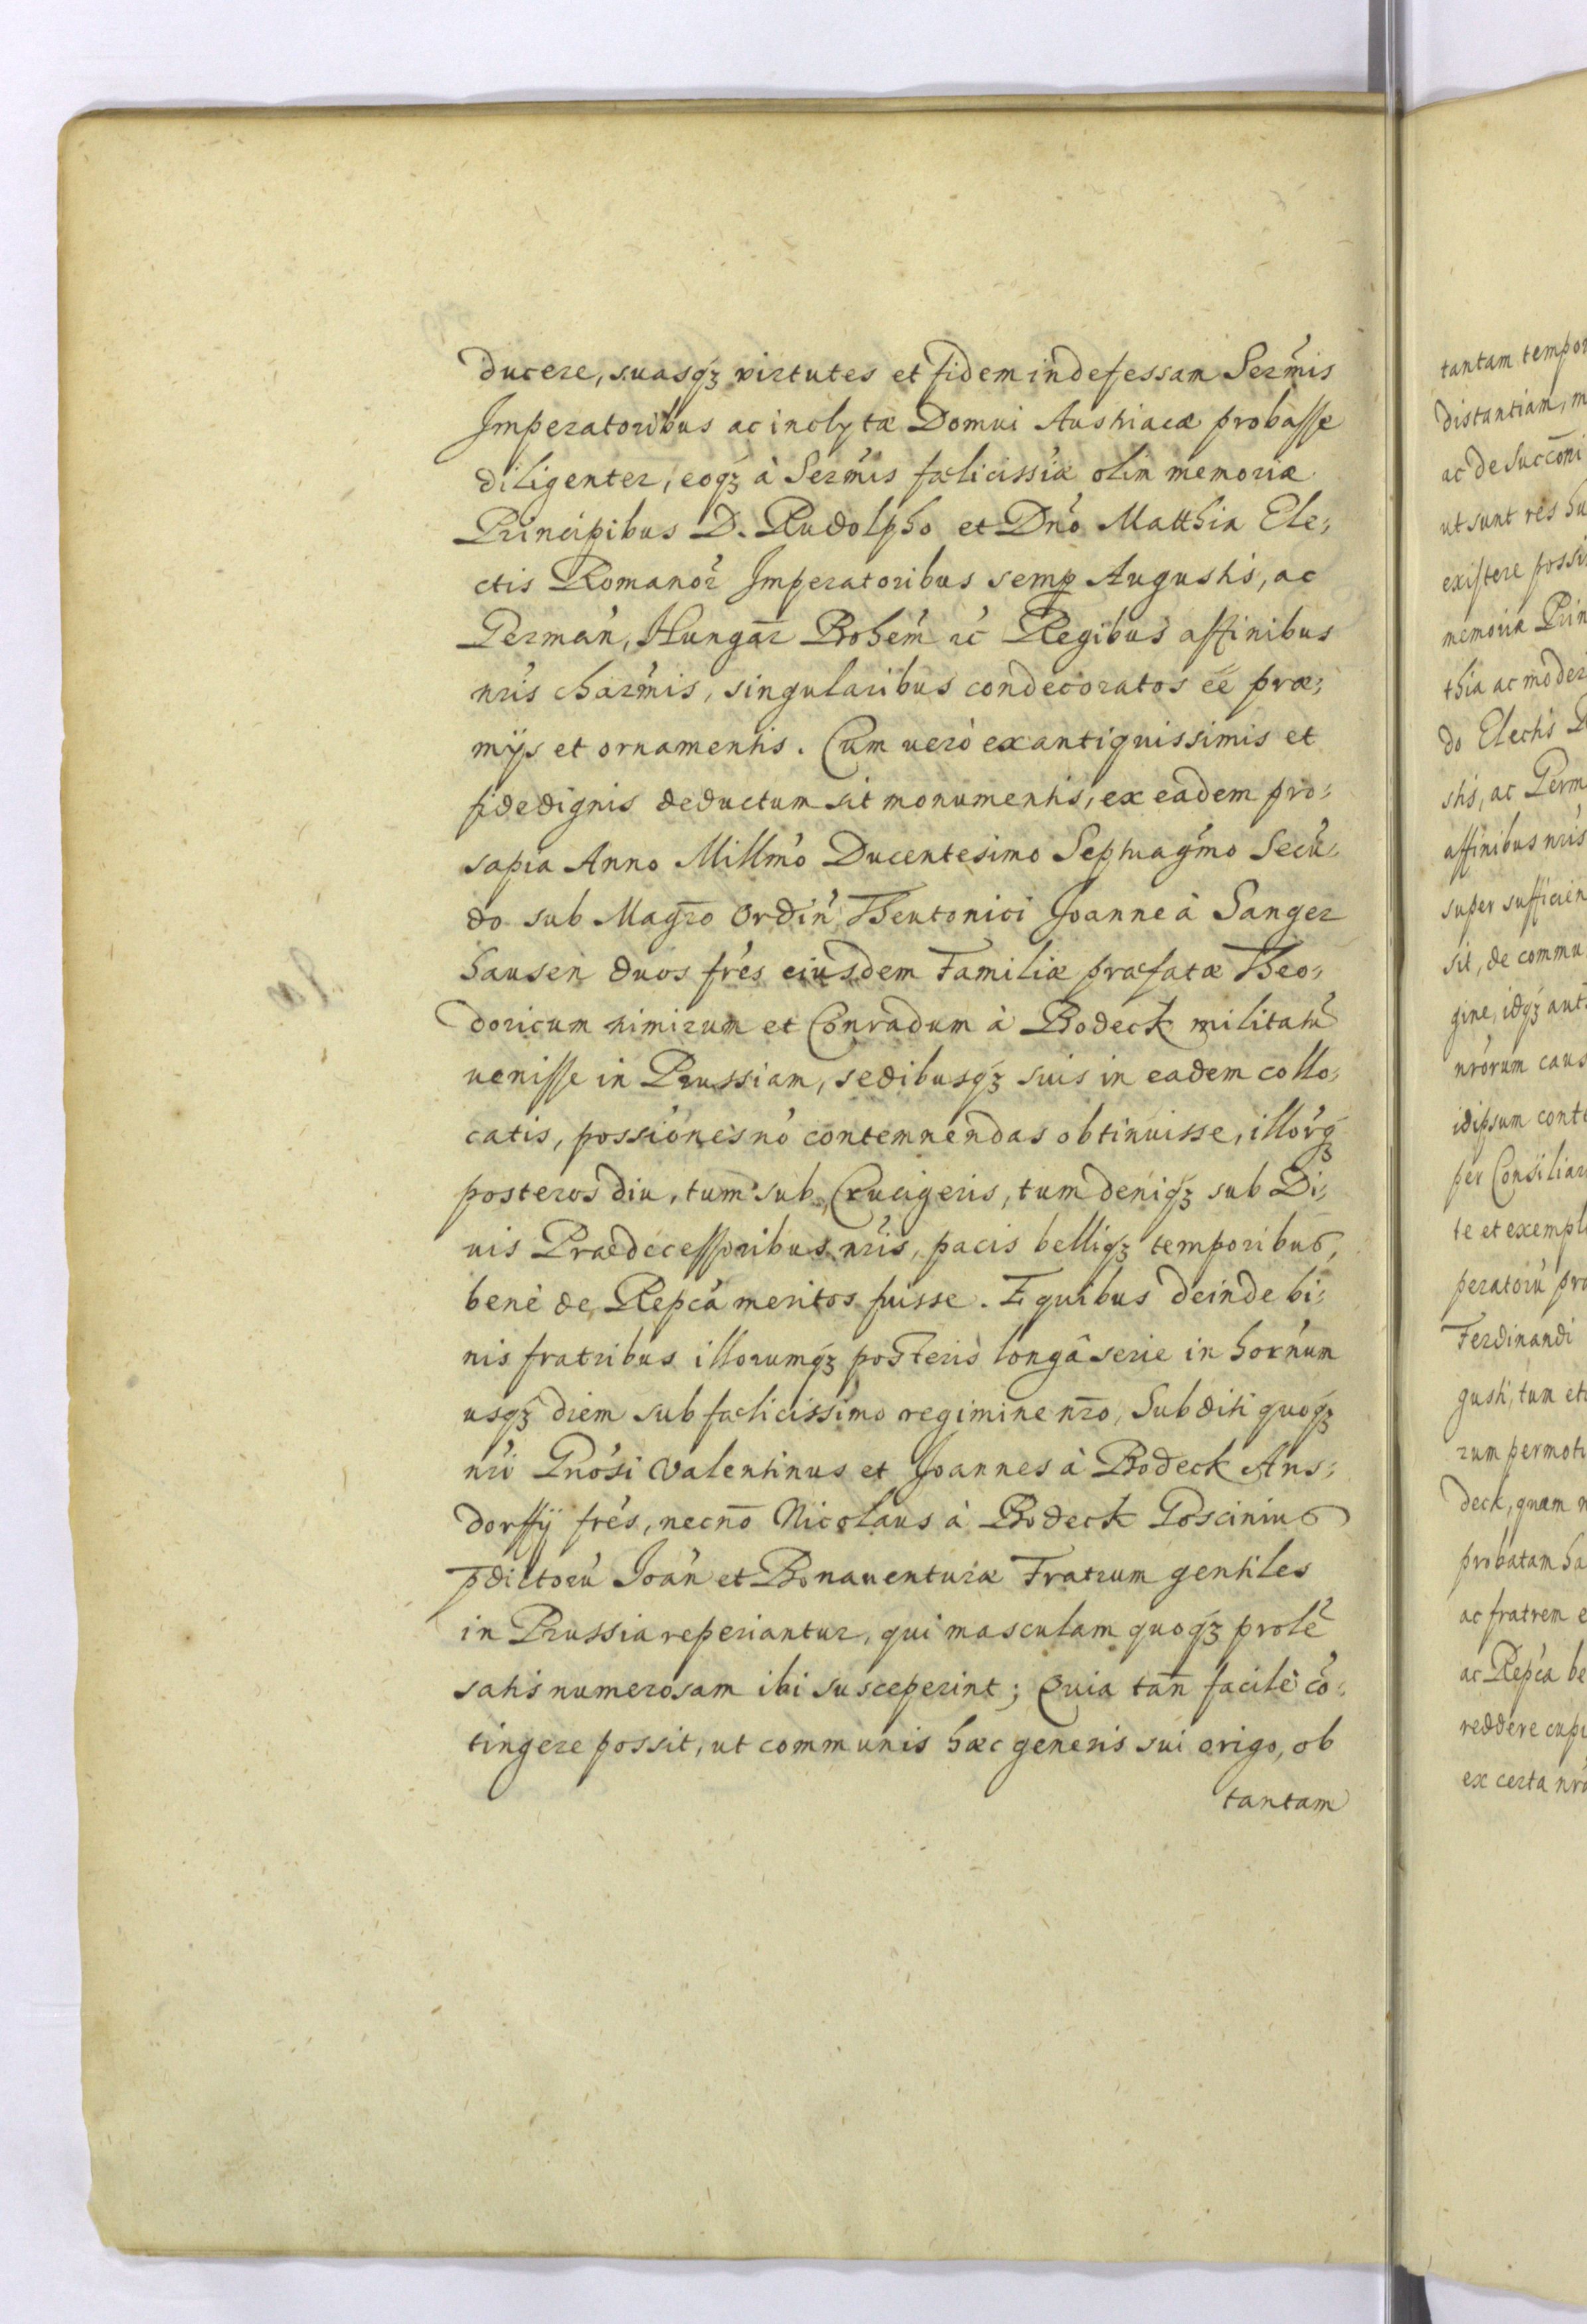 ducere, suasq́ꝫ virtutes et fidem indefessam Serm̃is
Imperatoribus ac inclytæ Domui Austriacæ probasse
diligenter, eoq́ꝫ à Serm̃is fælicissiæ olim memoriæ
Principibus D. Rudolpho et Dño Matthia Ele;
ctis Romanor̃ Imperatoribus semꝑ Augustis, ac
German̍, Hungar̄ Bohem̍ ꝛc̍ Regibus affinibus
nris̍ char̍mis, singularibus condecoratos ee̍ præ;
mijs et ornamentis. Cum uerò ex antiquissimis et
fide dignis deductum sit monumentis, ex eadem pro;
sapia Anno Millm̍o Ducentesimo Septuagm̍o Secũ;
do sub Magr̄o Ordin̍ Theutonici Joanne à Sanger
hausen duos fr̍es eiusdem Familiæ præfatæ Theo;
doricum nimirum et Conradum à Bodeck militatũ
uenisse in Prussiam, sedibusq́ꝫ suis in eadem collo;
catis, possio̍nes no̍ contemnendas obtinuisse, illor̍qꝫ
posteros diu, tum sub Crucigeris, tum deniq́ꝫ sub Di;
uis Praedecessoribus nris̍, pacis belliqꝫ temporibus,
benè de Repca̍ meritos fuisse. E quibus deinde bi;
nis fratribus illorumq́ꝫ posteris longâ serie in hor̍num
usq́ꝫ diem sub fælicissimo regimine nr̄o, Subditi quoq́ꝫ
nri̍ Gno̍si Valentinus et Joannes à Bodeck Ans;
dorffij fr̍es, necn̄o Nicolaus à Bodeck Goscinius
p̄dictorũ Joan̍ et Bonauenturæ Fratrum gentiles
in Prussia reperiantur, qui masculam quoq́ꝫ prolẽ
satis numerosam ibi susceperint; Quia tan̄ facilè cõ;
tingere possit, ut communis hæc generis sui origo, ob
tantam
tantam tempor
distantiam, m
ac de succōni
ut sunt res hu
existere possi
memoriæ Prin
thia ac moder
do Electis
stis, ac Germ
affinibus nris̍
super sufficien
sit, de commu
gine, idq́ꝫ aut
nro̍rum caus
idipsum cont
per Consiliar
te et exempl
peratorũ pro
Ferdinandi
gusti, tum et
rum permoti
deck, quam n
probatam ha
ac fratrem e
ac Repca̍ be
reddere cupi
ex certa nra̍